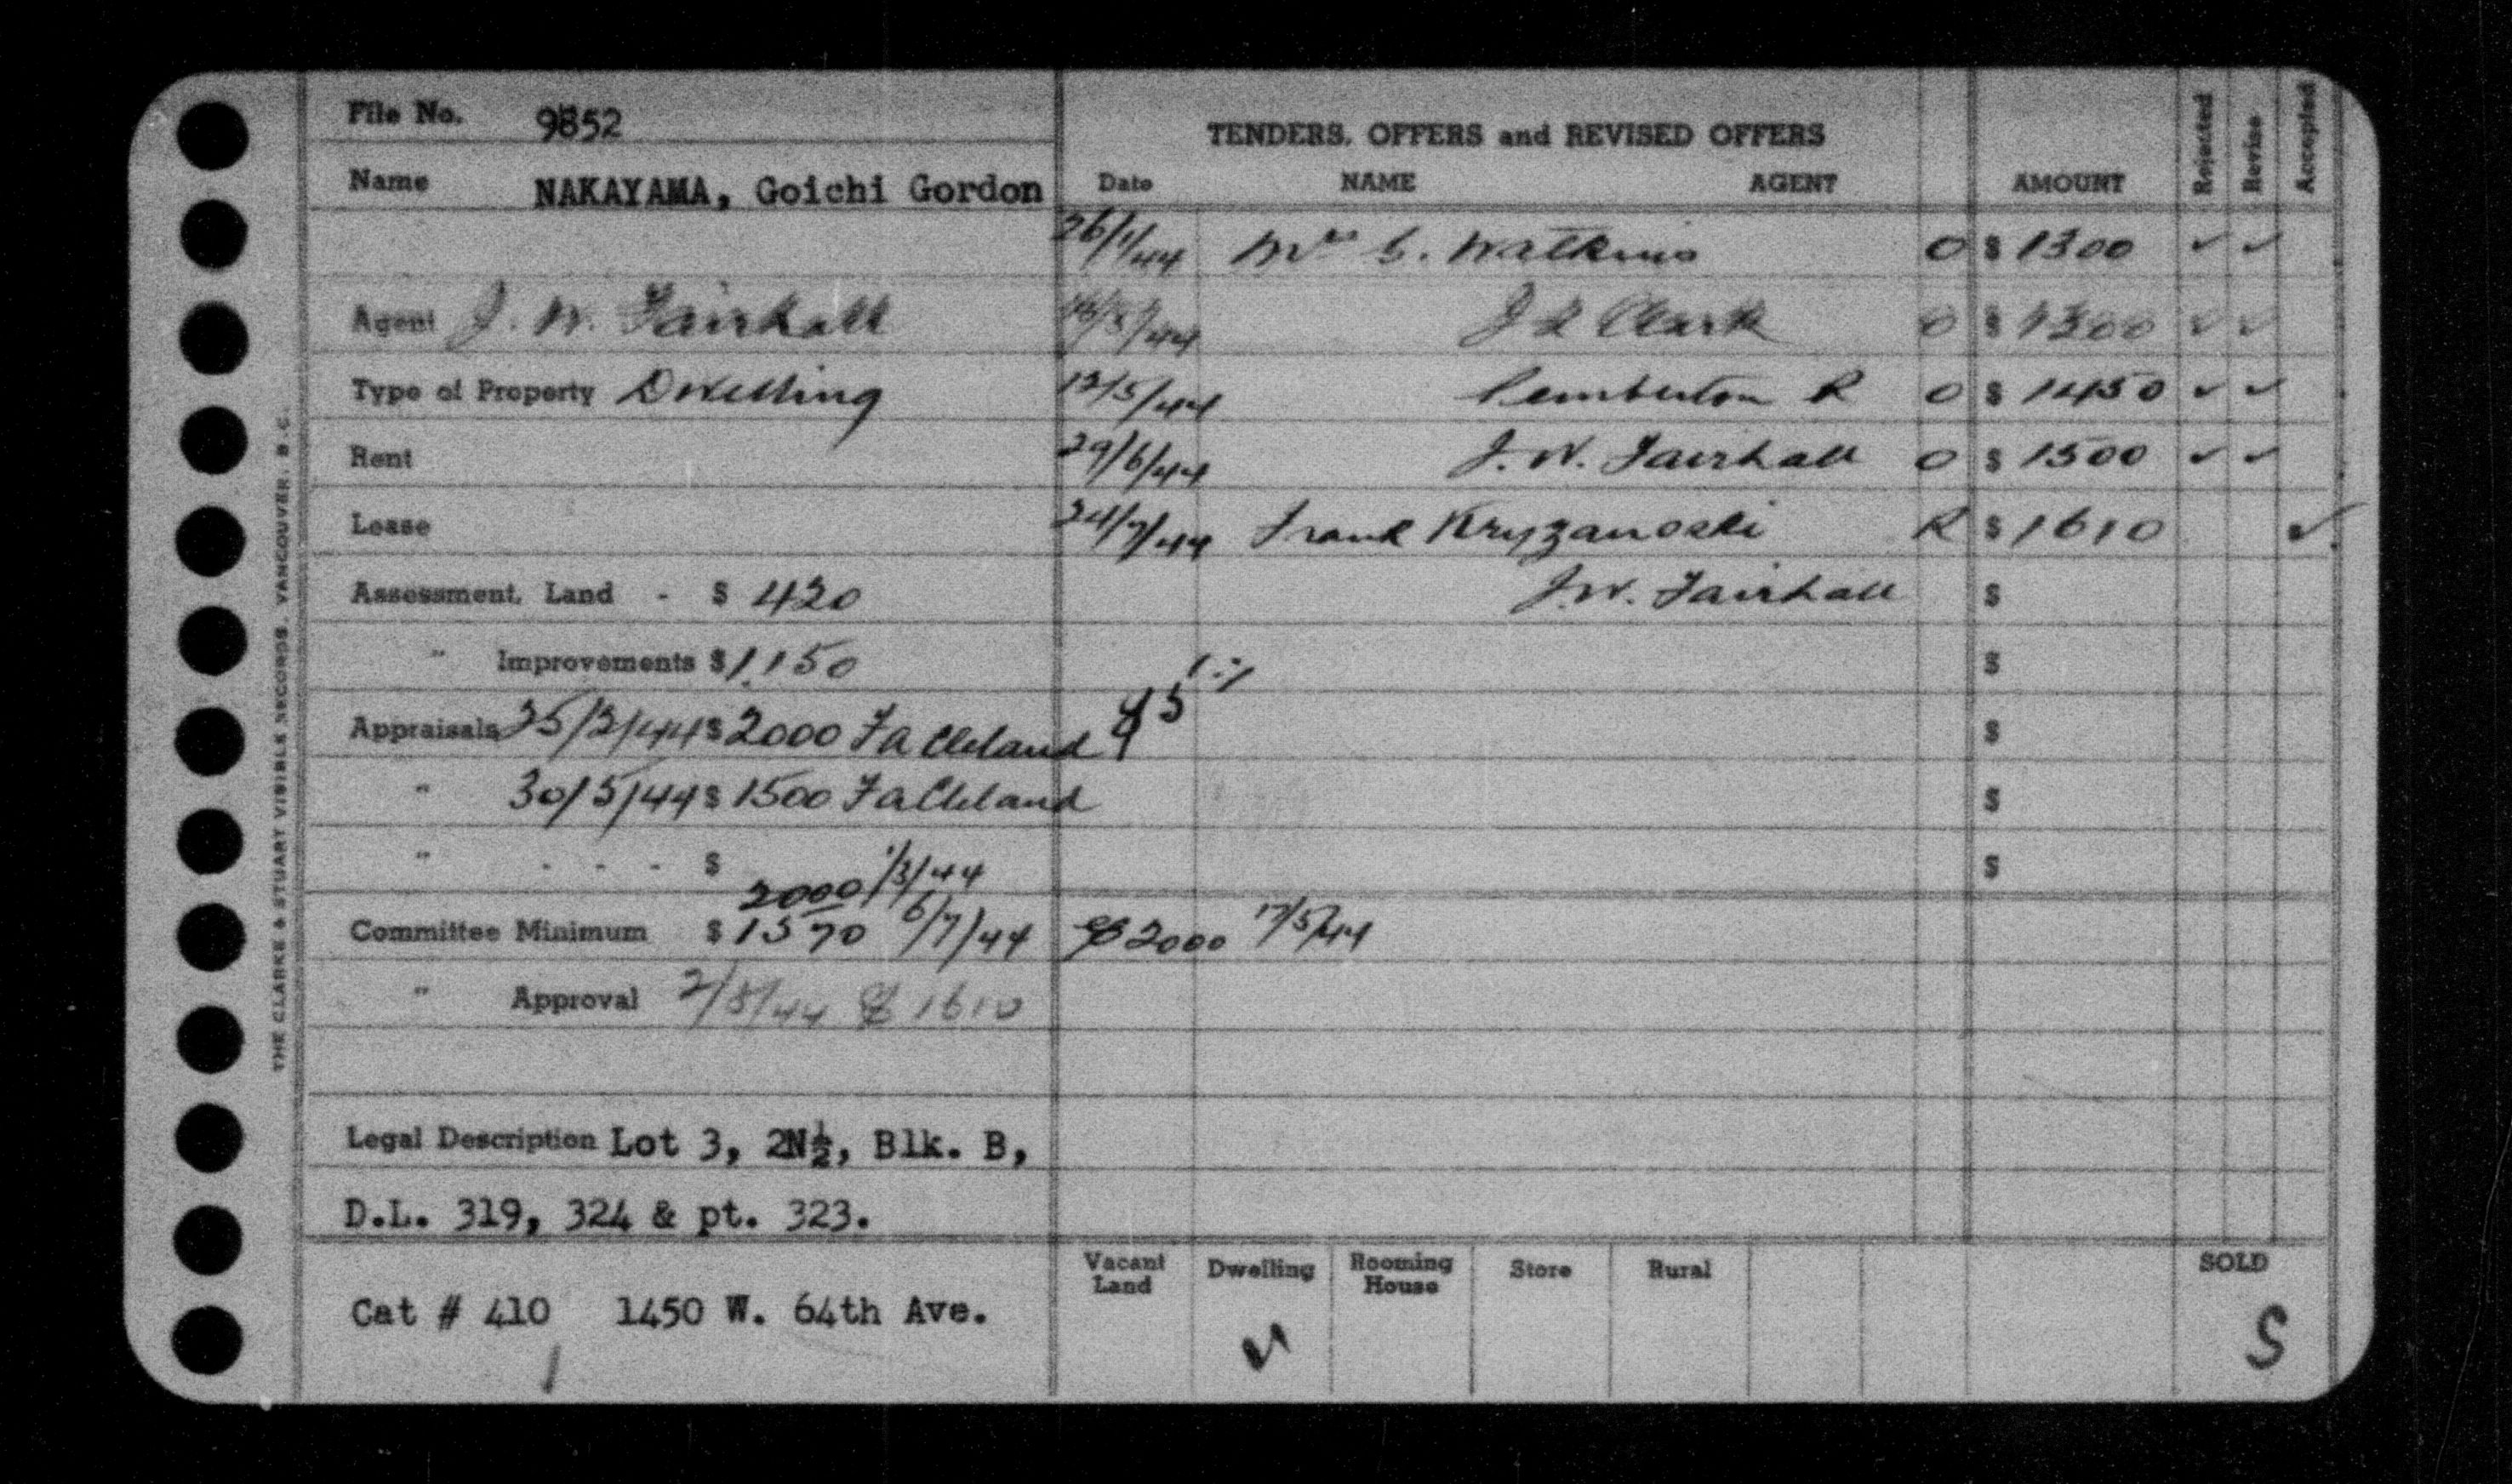 File No. 9852
Name NAKAYAMA, Goichi Gordon
Agent J. W. Fairhall
Type of Property Dwelling
Rent
Lease
Assessment. Land - $ 420
" Improvements $ 1,150
Appraisals 25/2/44 $ 2000 F A Cleland
" 30/5/44 $ 1500 F A Cleland
" - - - $
2000 1/3/44
Committee Minimum $ 1570 6/7/44 2000 17/5/44
" Approval 2/8/44 1610
Legal Description Lot 3, 2N½, Blk. B,
D.L. 319, 324 & pt. 323.
Cat # 410 1450 W. 64th Ave.
TENDERS, OFFERS and REVISED OFFERS
Date NAME AGENT AMOUNT Rejected Revise Accepted
26/1/44 Mrs Watkins O $ 1300 ✓ ✓
/44 Clark O $ 1300 ✓ ✓
12/5/44 Pemberton R O $ 1450 ✓ ✓
29/6/44 J. W. Fairhall O $ 1500 ✓ ✓
24/7/44 Frank Kryzanoski R $ 1610 ✓
J. W. Fairhall $
$
$
$
$
Vacant Land Dwelling Rooming House Store Rural SOLD
✓ S
THE CLARKE & STUART VISIBLE RECORDS, VANCOUVER, B.C.